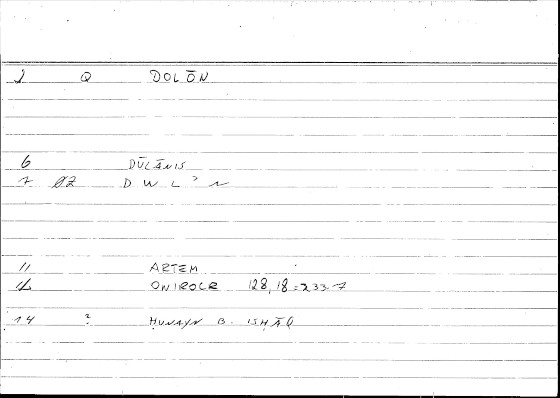 2 Q DOLŌN
6 DŪLĀNIS
7 ØZ D W L ʾ N
11 ARTEM
12 ONIROCR 128,18 = 233.7
14 ? ḤUNAYN B. ISḤĀQ